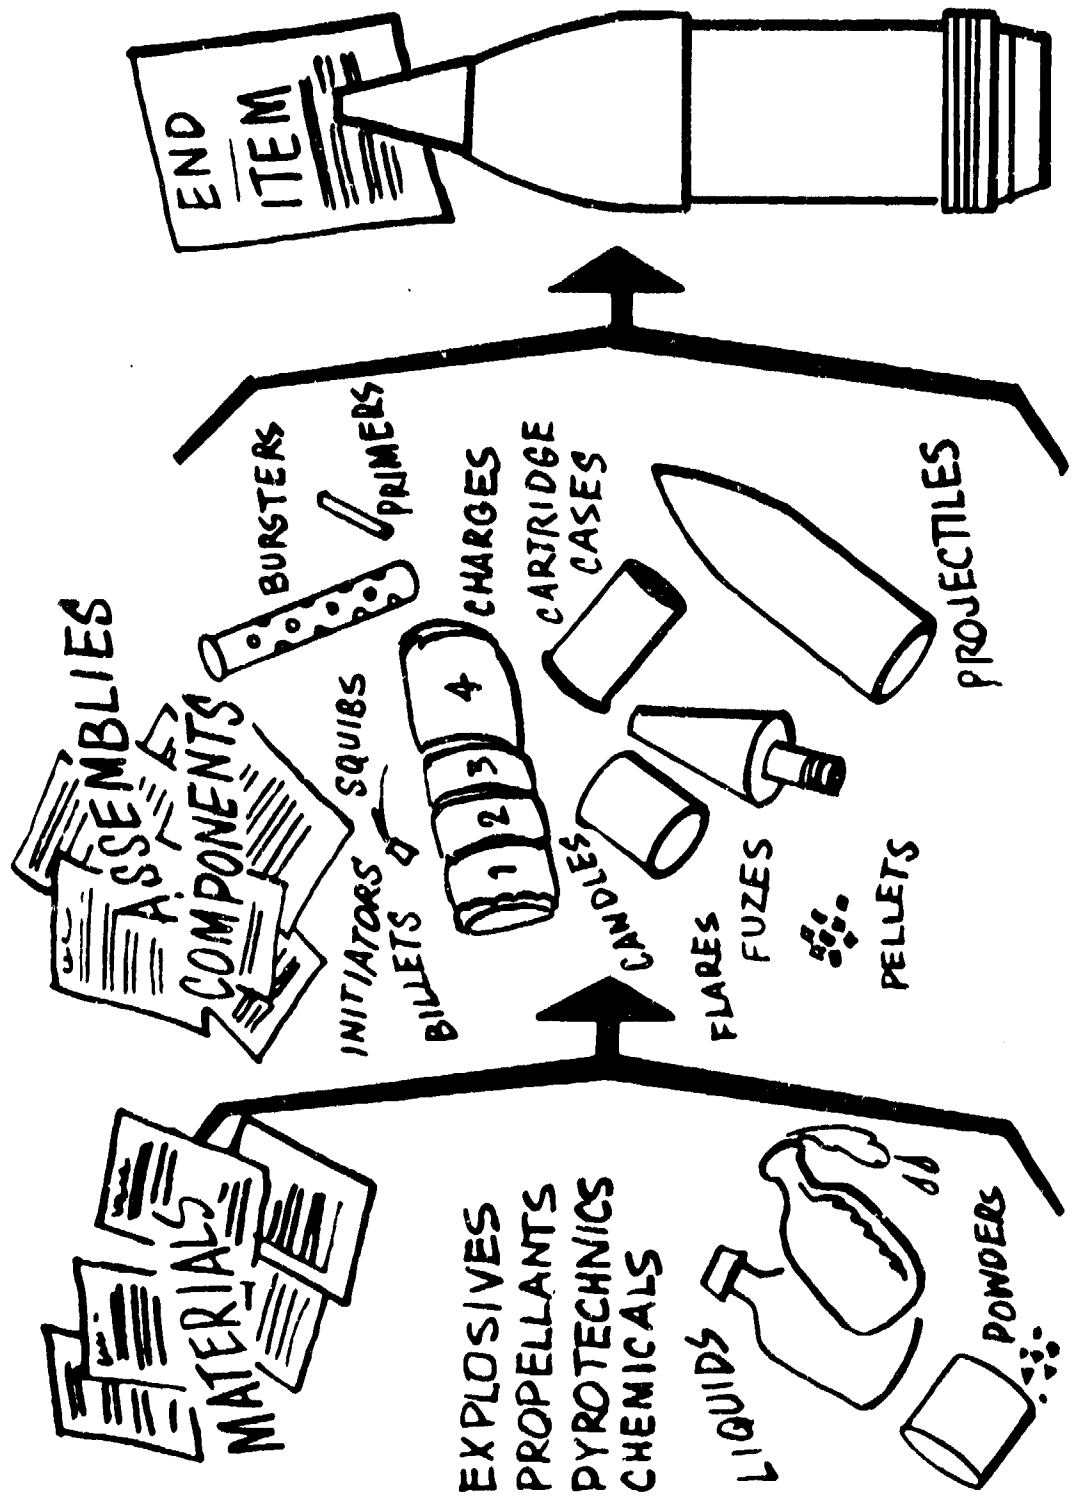 MATERIALS
EXPLOSIVES
PROPELLANTS
PYROTECHNICS
CHEMICALS
LIQUIDS
POWDERS
ASSEMBLIES
&
COMPONENTS
INITIATORS
SQUIBS
BILLETS
BURSTERS
PRIMERS
1 2 3 4
CHARGES
CARTRIDGE
CASES
CANDLES
FLARES
FUZES
PELLETS
PROJECTILES
END
ITEM